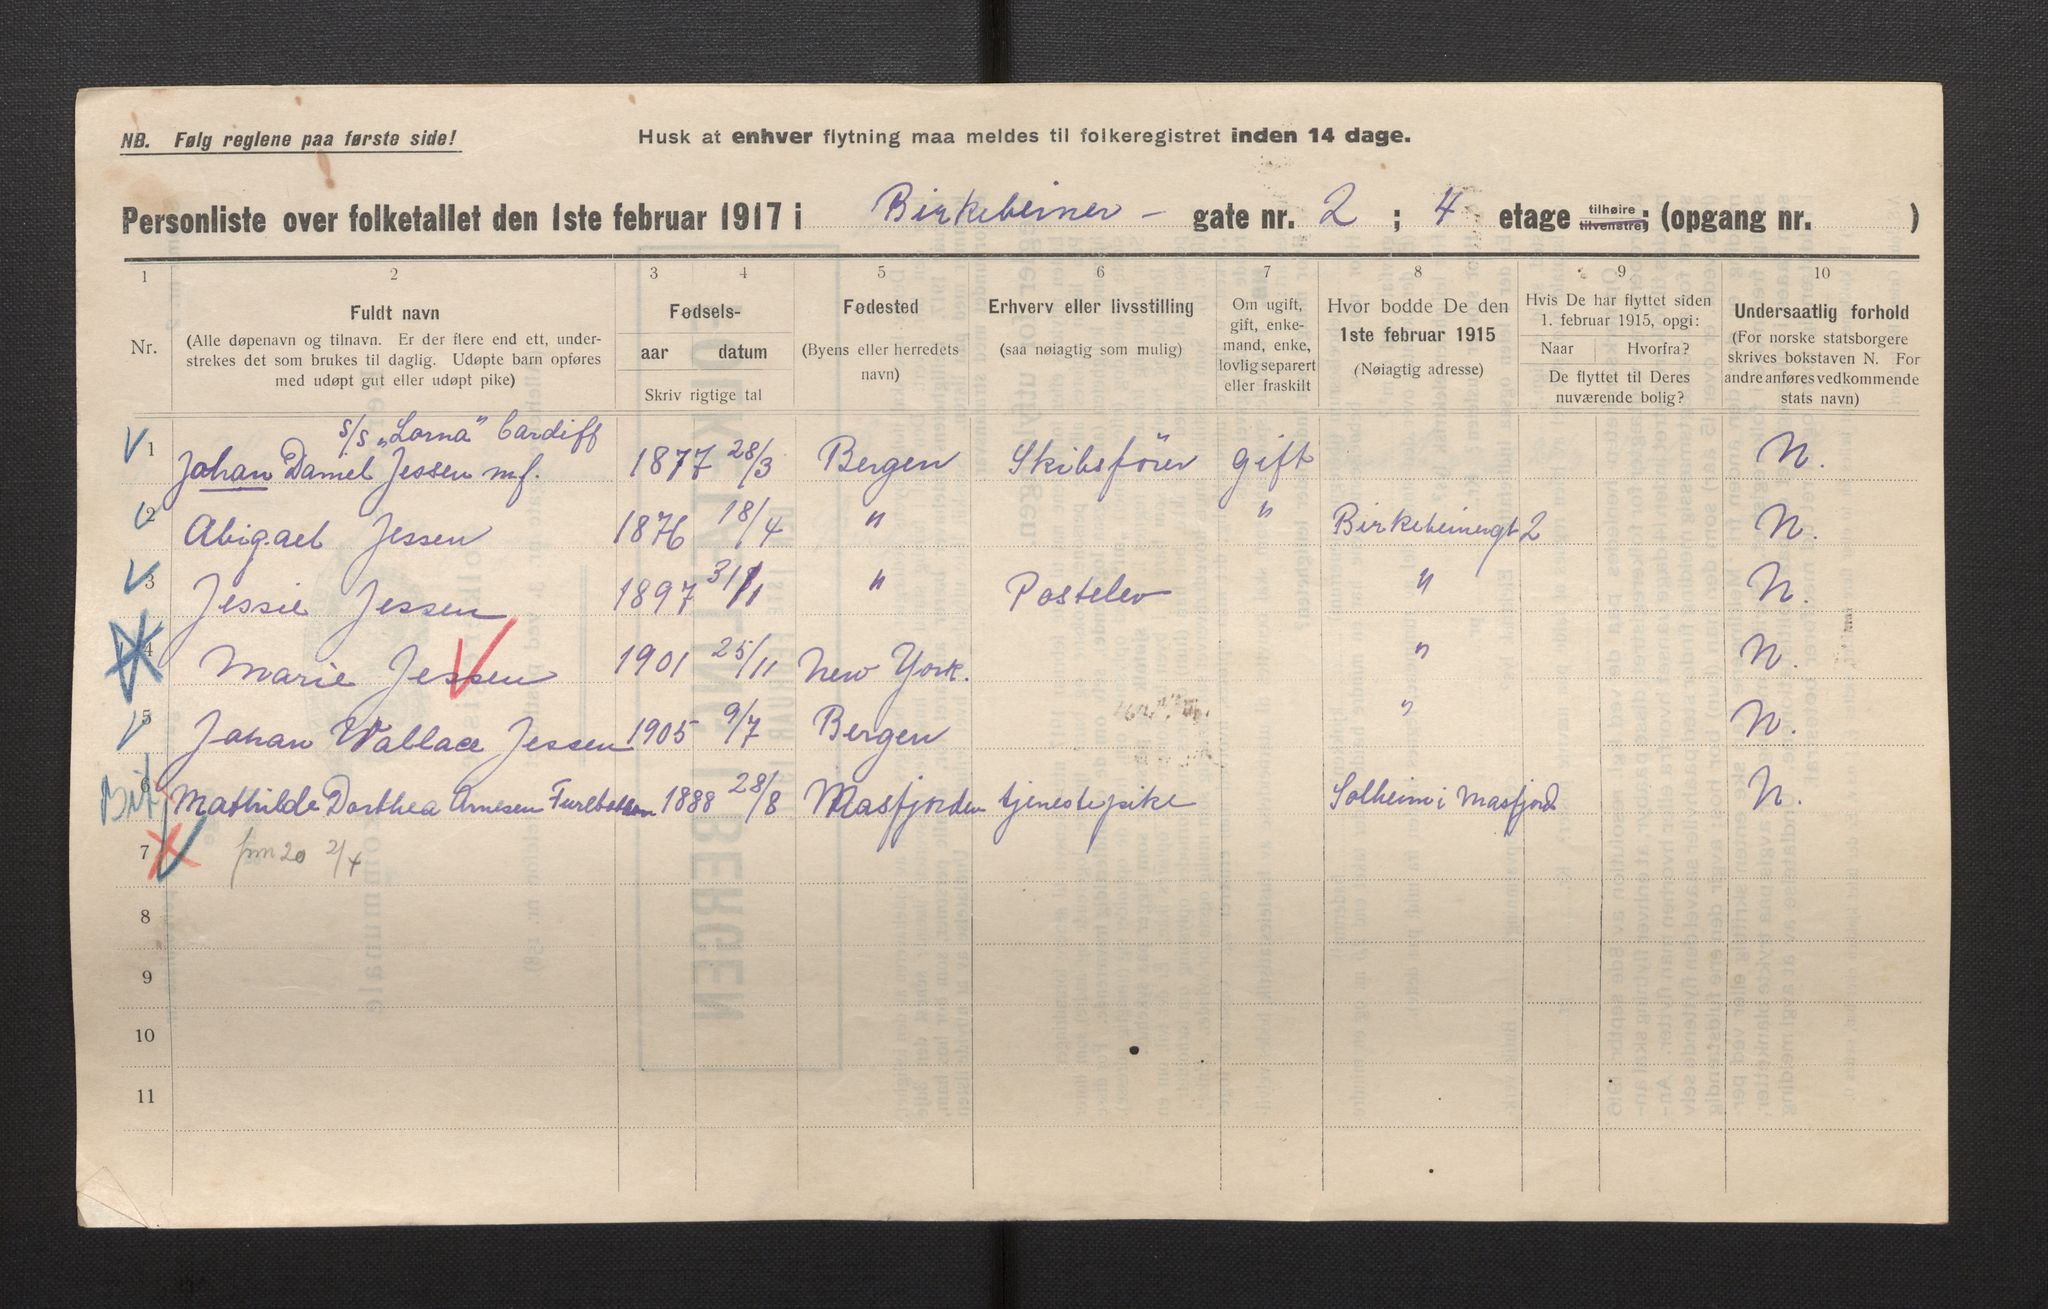 NB. Følg reglene paa første side!
Husk at enhver flytning maa meldes til folkeregistret inden 14 dage.
Personliste over folketallet den 1ste februar 1917 i Birkebeiner- gate nr. 2 ; 4 etage tilhøire tilvenstre; (opgang nr. )
1 2 3 4 5 6 7 8 9 10
Nr.
Fuldt navn
(Alle døpenavn og tilnavn. Er der flere end ett, under-
strekes det som brukes til daglig. Udøpte barn opføres
med udøpt gut eller udøpt pike)
Fødsels-
aar datum
Skriv rigtige tal
Fødested
(Byens eller herredets
navn)
Erhverv eller livsstilling
(saa nøiagtig som mulig)
Om ugift,
gift, enke-
mand, enke,
lovlig separert
eller fraskilt
Hvor bodde De den
1ste februar 1915
(Nøiagtig adresse)
Hvis De har flyttet siden
1. februar 1915, opgi:
Naar Hvorfra?
De flyttet til Deres
nuværende bolig?
Undersaatlig forhold
(For norske statsborgere
skrives bokstaven N. For
andre anføres vedkommende
stats navn)
s/s "Lorna" Cardiff
1 Johan Daniel Jessen mf. 1877 28/3 Bergen Skibsfører gift N.
2 Abigael Jessen 1876 18/4 " " Birkebeinergt 2 N.
3 Jessie Jessen 1897 31/1 " Postelev " N.
4 Marie Jessen 1901 25/11 New York. " N.
5 Johan Wallace Jessen 1905 9/7 Bergen " N.
6 Mathilde Dorthea Arnesen 1888 28/8 Masfjorden tjenestepike Solheim i Masfjord N.
7 2/4
8
9
10
11